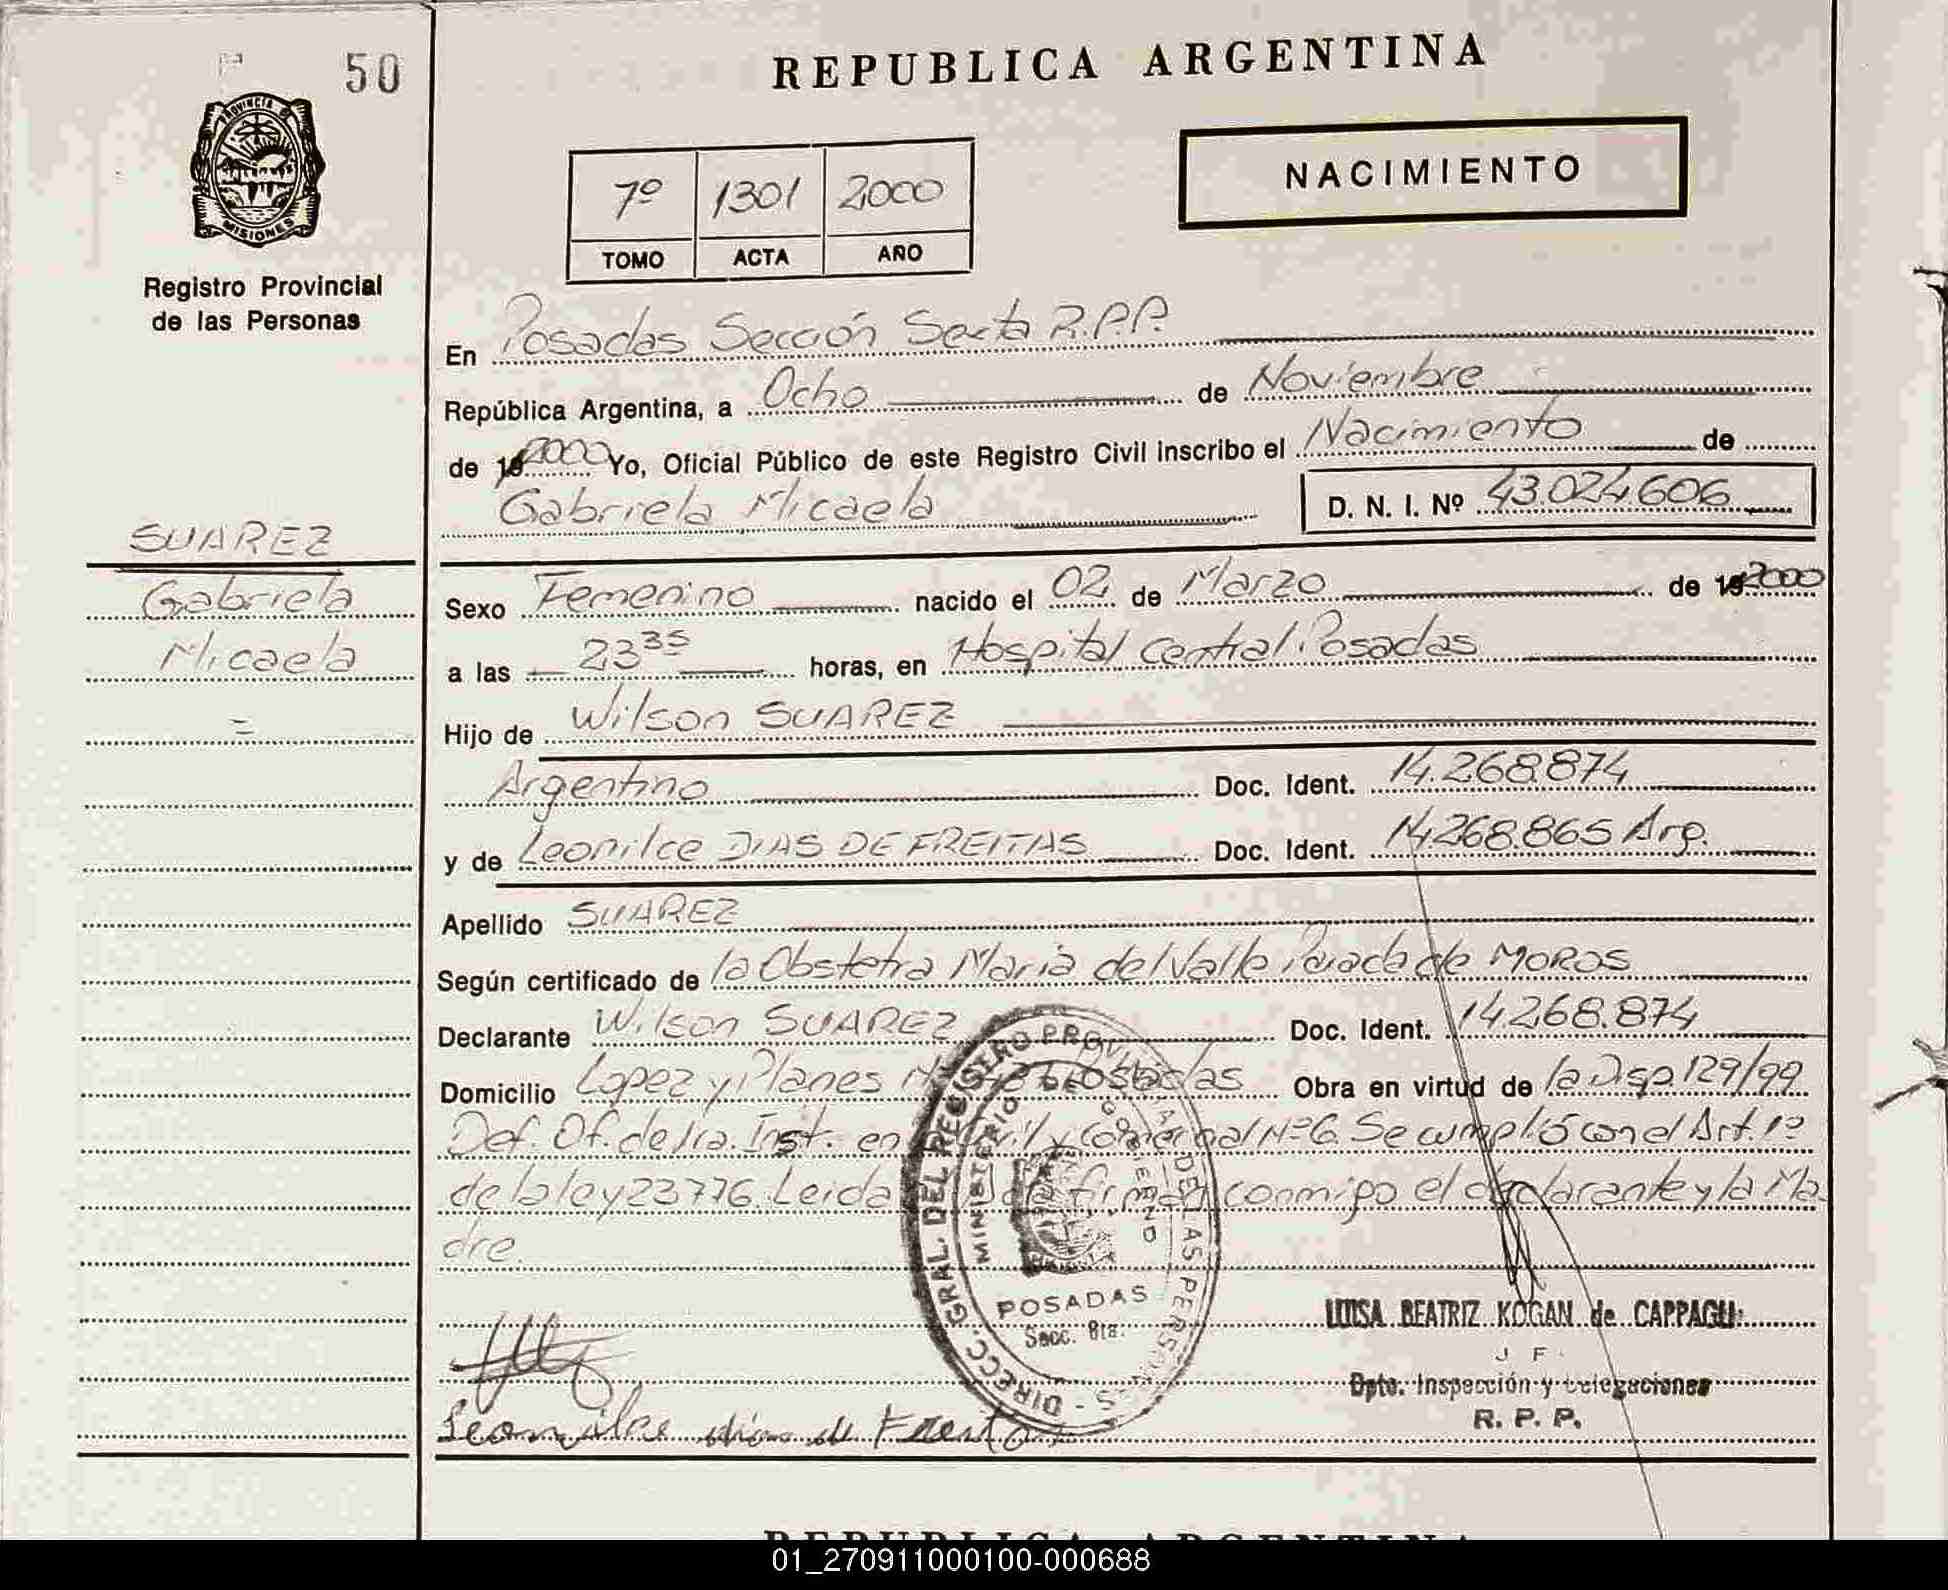 50
REPUBLICA ARGENTINA
PROVINCIA DE
MISIONES
Registro Provincial
de las Personas
7º 1301 2000
TOMO ACTA AÑO
NACIMIENTO
En Posadas Sección Sexta R.P.P.
República Argentina, a Ocho de Noviembre
de 2000 Yo, Oficial Público de este Registro Civil inscribo el Nacimiento de
Gabriela Micaela D. N. I. Nº 43.024.606
SUAREZ
Gabriela
Micaela
Sexo Femenino nacido el 02 de Marzo de 2000
a las 23 35 horas, en Hospital Central Posadas
Hijo de Wilson SUAREZ
Argentino Doc. Ident. 14.268.874
y de Leonilce DIAS DE FREITAS Doc. Ident. 14.268.865 Arg.
Apellido SUAREZ
Según certificado de la Obstetra Maria del Valle de MOROS
Declarante Wilson SUAREZ Doc. Ident. 14.268.874
Domicilio Lopez y Planes Posadas Obra en virtud de la Disp. 129/99
Def. Of. de 1ra. Inst. en Civil y Comercial Nº 6. Se cumplió con el Art. 1º
de la ley 23776. Leida firman conmigo el declarante y la Ma-
dre.
DIRECC. GRAL. DEL REGISTRO PROVINCIAL DE LAS PERSONAS
MINISTERIO DE GOBIERNO
POSADAS
Secc. 6ta.
LUISA BEATRIZ KOGAN de CAPPAGLI
J F
Dpto. Inspección y Delegaciones
R. P. P.
Leonilce dias de Freitas
REPUBLICA ARGENTINA
01_270911000100-000688